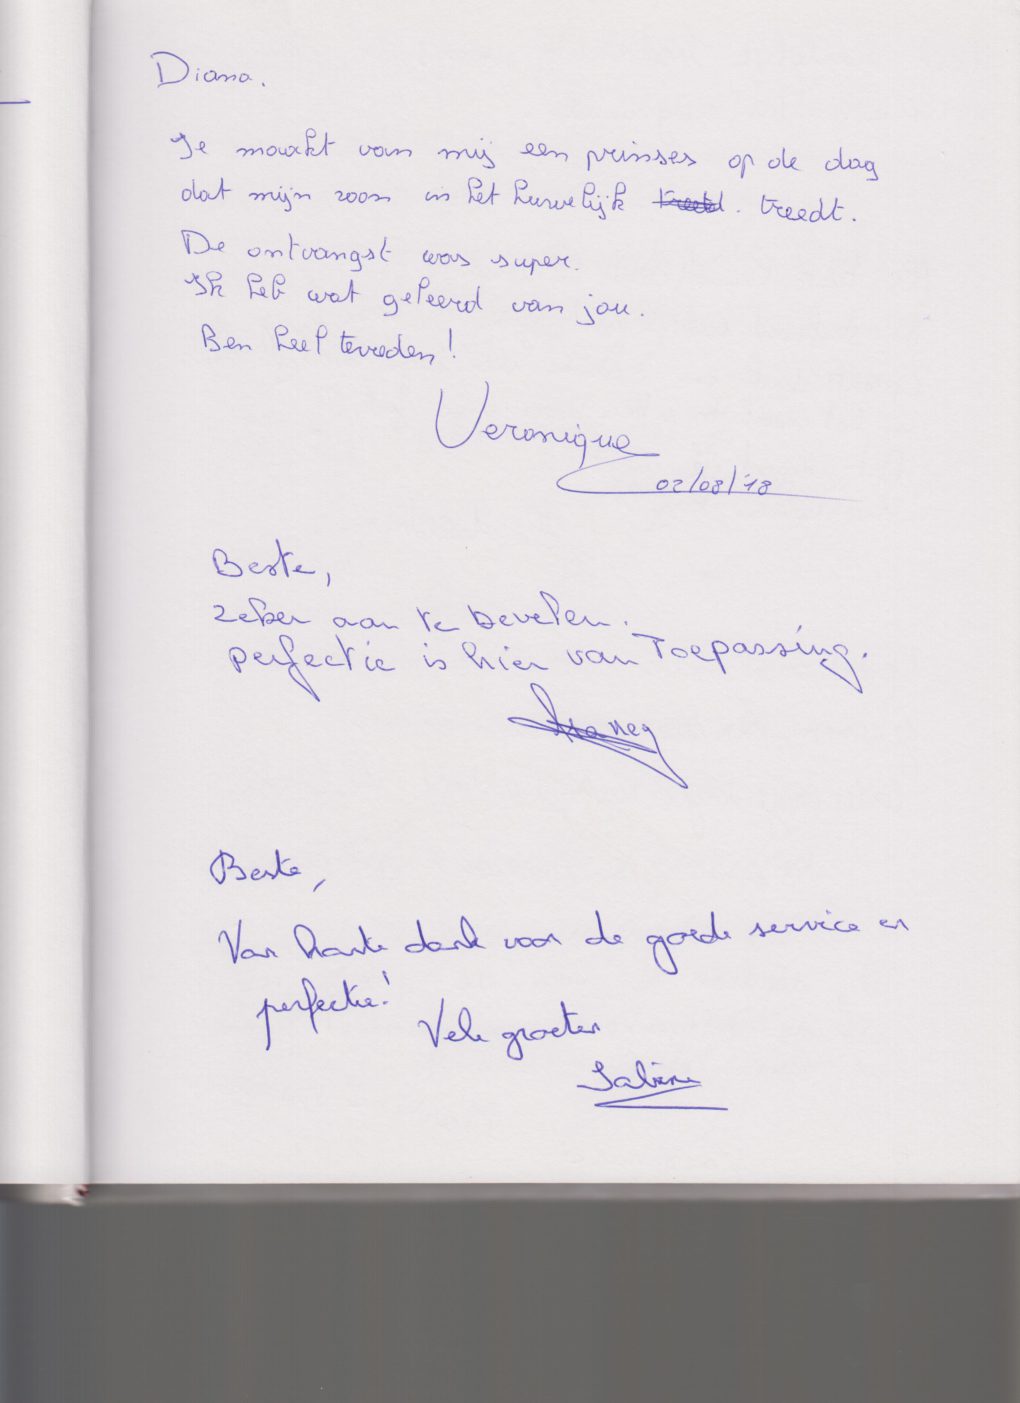 Diana.
Je maakt van mij een prinses op de dag
dat mijn zoon in het huwelijk treedt.
De ontvangst was super.
Ik heb wat geleerd van jou.
Ben heel tevreden!
Veronique
02/08/'18
Beste,
zeker aan te bevelen.
perfectie is hier van Toepassing.
Beste,
Van harte dank voor de goede service en
perfectie!
Vele groeten
Sabine